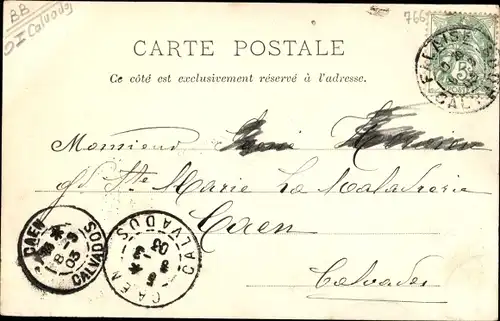 BB
OI Calvados
766
CARTE POSTALE
Ce côté est exclusivement réservé à l'adresse.
FALAISE
CALVADOS
5
POSTES
Monsieur
Ste Marie La Maladrerie
Caen
Calvados
CAEN
8 - 3
03
CALVADOS
CAEN
CALVADOS
8 - 3
03